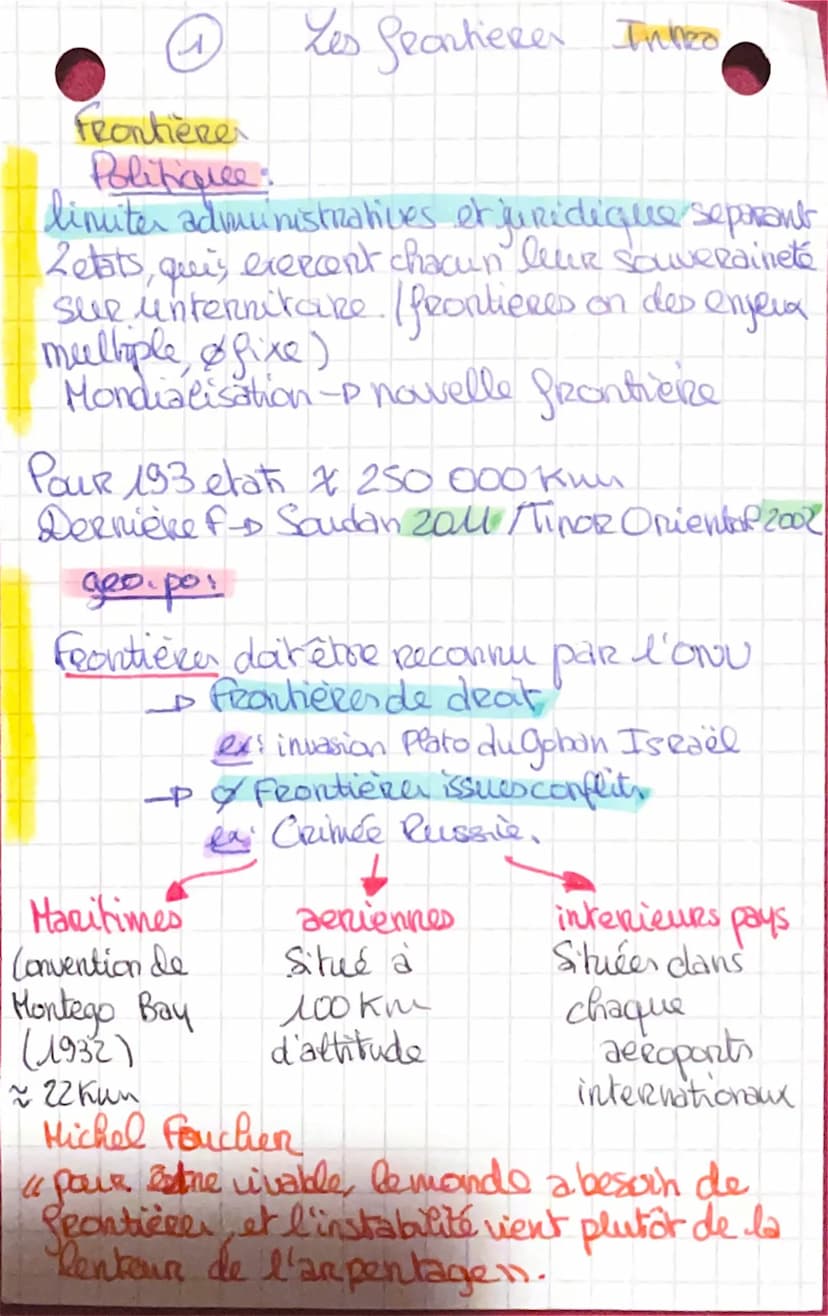 1 Les frontieres Intro
Frontières
Politique :
limites administratives et juridique separant
2 etats, qui exercent chacun leur souveraineté
sur un territoire. (frontieres on des enjeux
multiple, ø fixe)
Mondialisation → nouvelle frontière
Pour 193 etats x 250 000 Km
Dernière f → Soudan 2011 / Timor Oriental 2002
geo. po :
Frontières doit être reconnu par l'ONU
→ frontières de droit
ex : invasion Plato du Gohan Israël
→ ø Frontières issues conflits
ex : Crimée Russie.
Maritimes aeriennes interieurs pays
Convention de Situé à Situées dans
Montego Bay 100 Km chaque
(1932) d'altitude aeroports
≈ 22 Km internationaux
Michel Foucher
« pour être vivable, le monde a besoin de
frontières, et l'instabilité vient plutôt de la
lenteur de l'arpentage ».